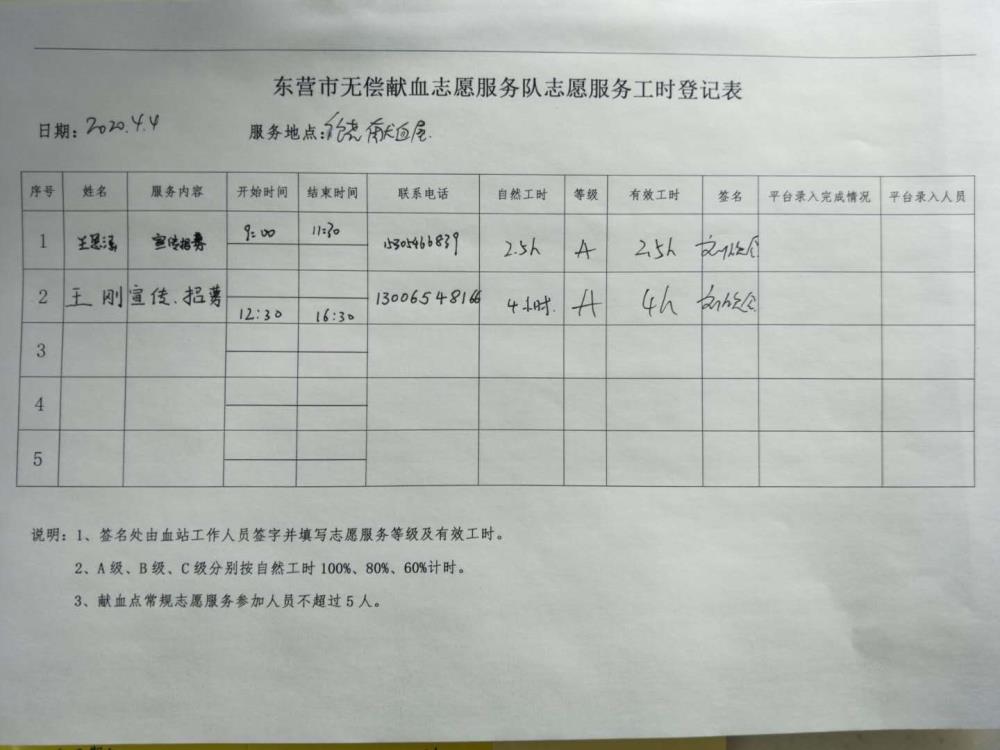 东营市无偿献血志愿服务队志愿服务工时登记表
日期：2020.4.4 服务地点：献血屋.
序号 姓名 服务内容 开始时间 结束时间 联系电话 自然工时 等级 有效工时 签名 平台录入完成情况 平台录入人员
1 王思涵 宣传招募 9:00 11:30 15305466839 2.5h A 2.5h
2 王刚 宣传、招募 12:30 16:30 13006548166 4小时. A 4h
3
4
5
说明：1、签名处由血站工作人员签字并填写志愿服务等级及有效工时。
2、A级、B级、C级分别按自然工时100%、80%、60%计时。
3、献血点常规志愿服务参加人员不超过5人。